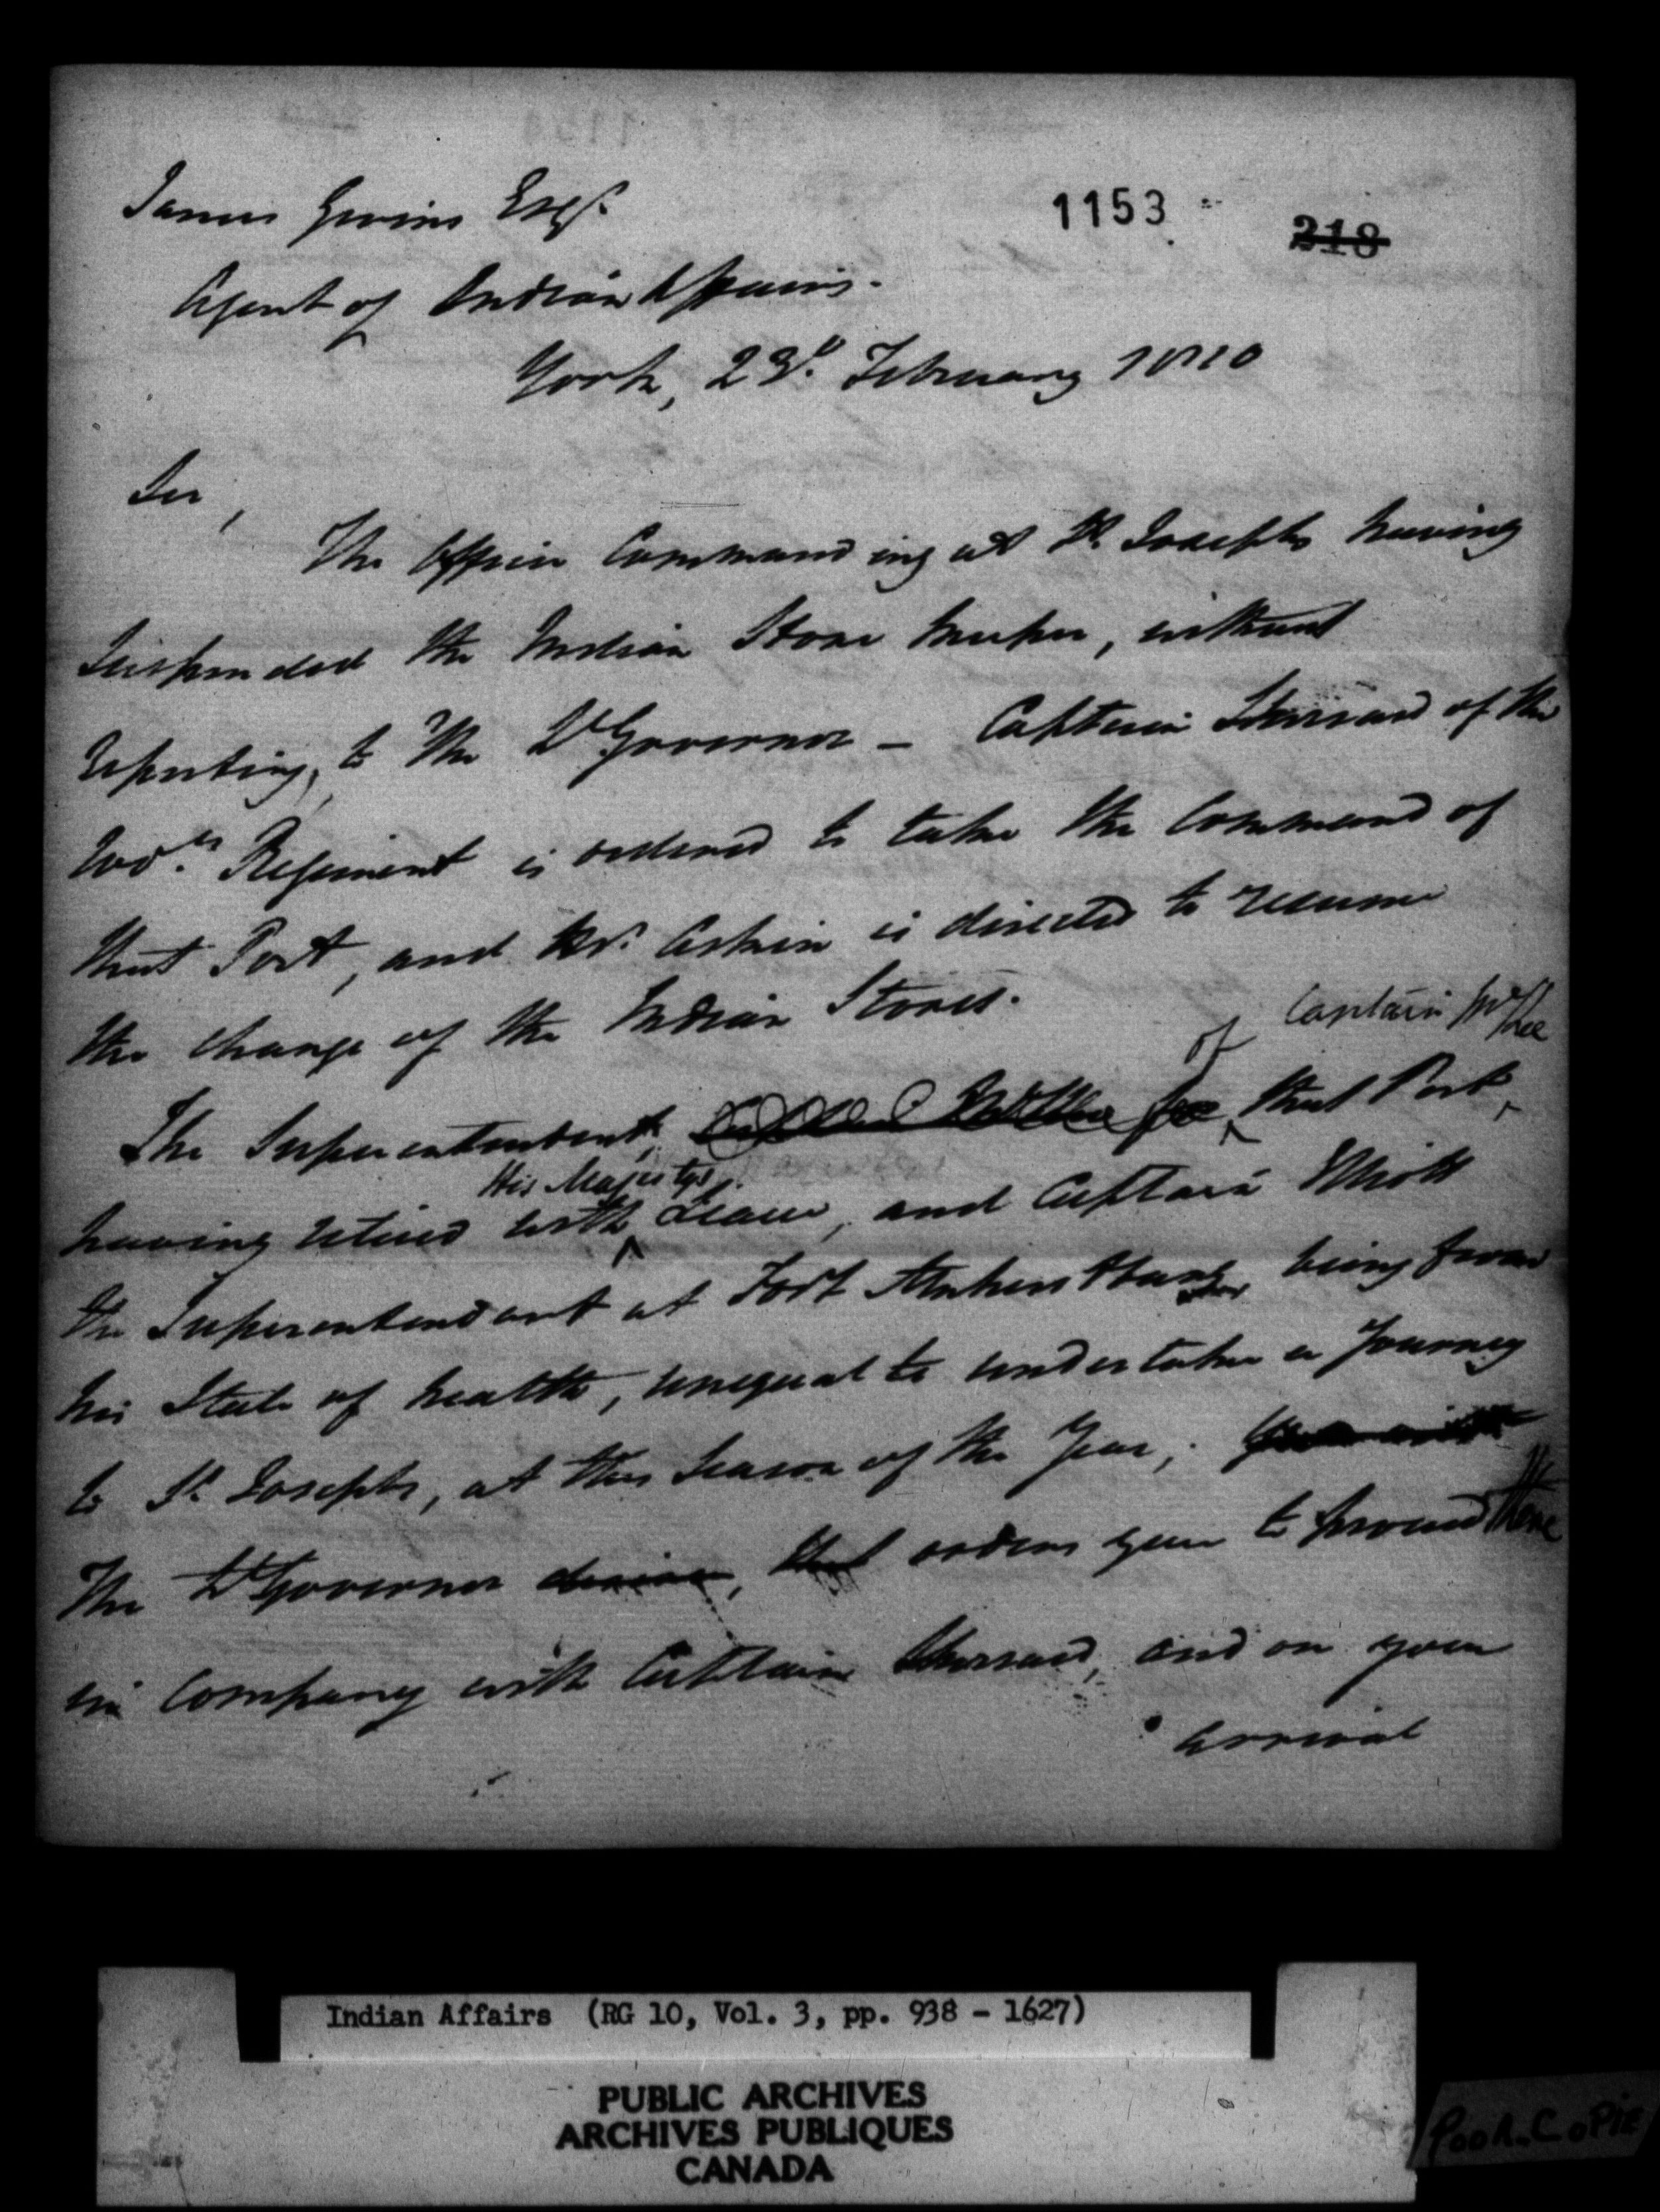 1153
218
James Givins Esqr.
Agent of Indian Affairs.
York, 23d. February 1810
Sir,
The Officer Commanding at St. Josephs having
suspended the Indian Store keeper, without
reporting, to the Lt Governor – Captain of the
100.th Regiment is ordered to take the Command of
that Post, and Mr. Askin is directed to resume
the charge of the Indian Stores.
of Captain McKee
The Superintendent, that Post,
His Majestys
having retired with Leave, and Captain Elliott
the Superintendant at Fort Amherstburg, being from
his State of health, unequal to undertake a Journey
to St. Josephs, at this Season of the Year,
The Lt Governor desires, that orders you to proceed there
in Company with Captain and on your
arrival
Indian Affairs (RG 10, Vol. 3, pp. 938 - 1627)
PUBLIC ARCHIVES
ARCHIVES PUBLIQUES
CANADA
POOR COPIE